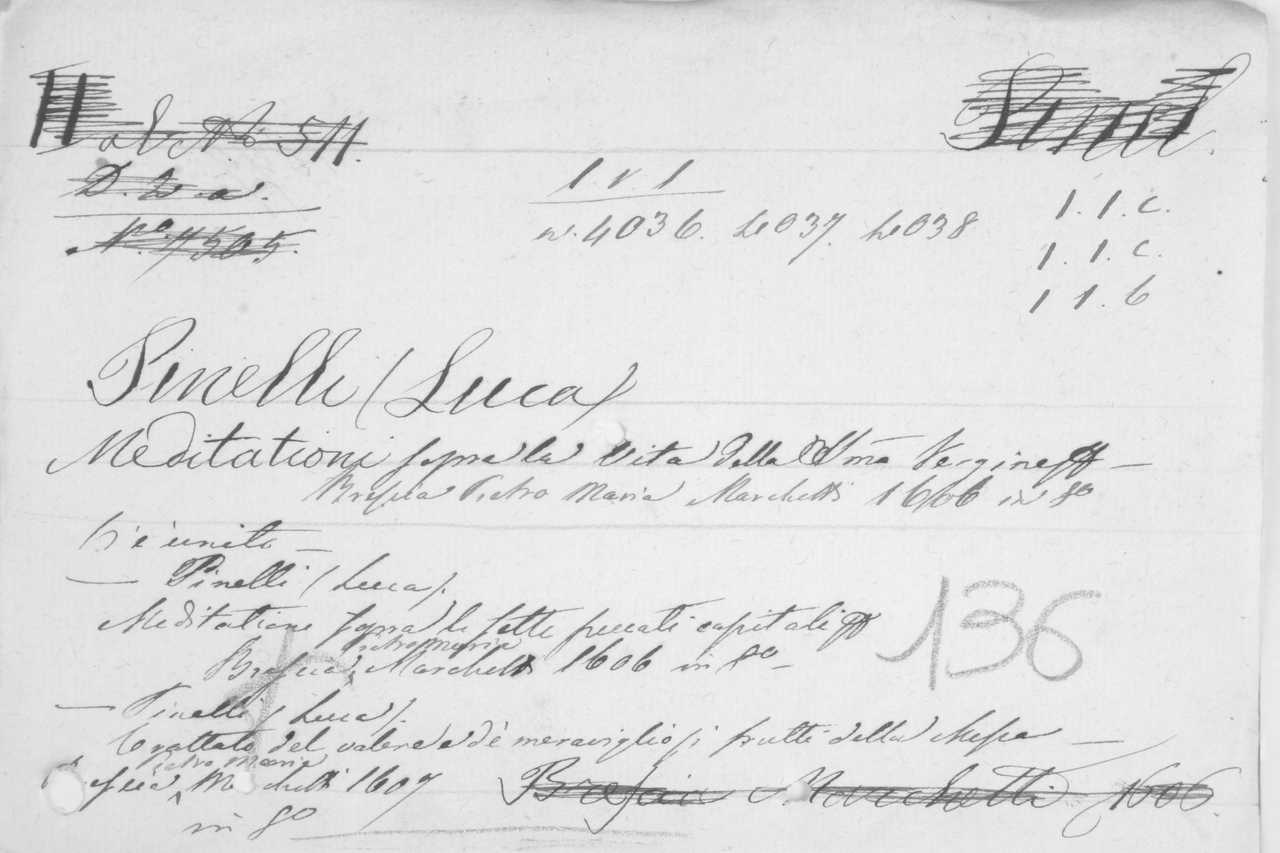 Sal. No 511.
D. W. a.
No. 7505.
1. v. 1
n. 4036. 4037. 4038
1. 1. c.
1. 1. c.
1 1. 6
Pinelli (Luca)
Meditationi sopra la Vita della Vergine —
Brescia Pietro Maria Marchetti 1606 in 8o
C'è unito —
— Pinelli (Luca).
Meditatione sopra li sette peccati capitali
Pietro Maria
Brescia, Marchetti 1606 in 8o —
136
— Pinelli (Luca).
Trattato del valore e de' meravigliosi frutti della Messa —
Pietro Maria
Brescia, Marchetti 1607
in 8o
Brescia Marchetti 1606